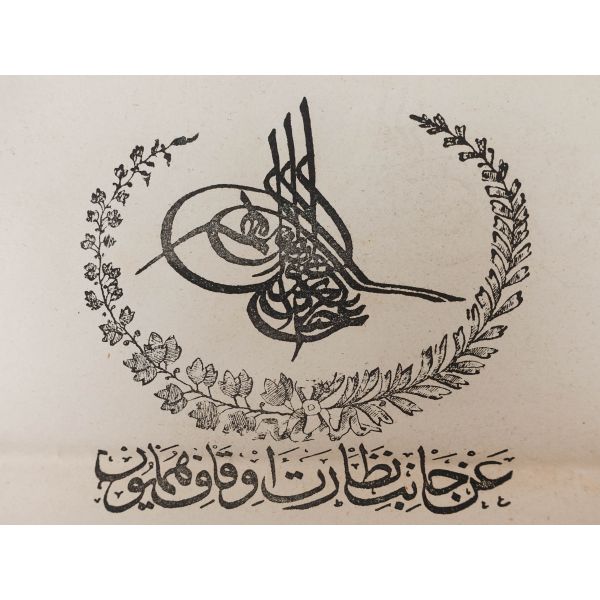 عن جانب نظارت اوقاف همايون